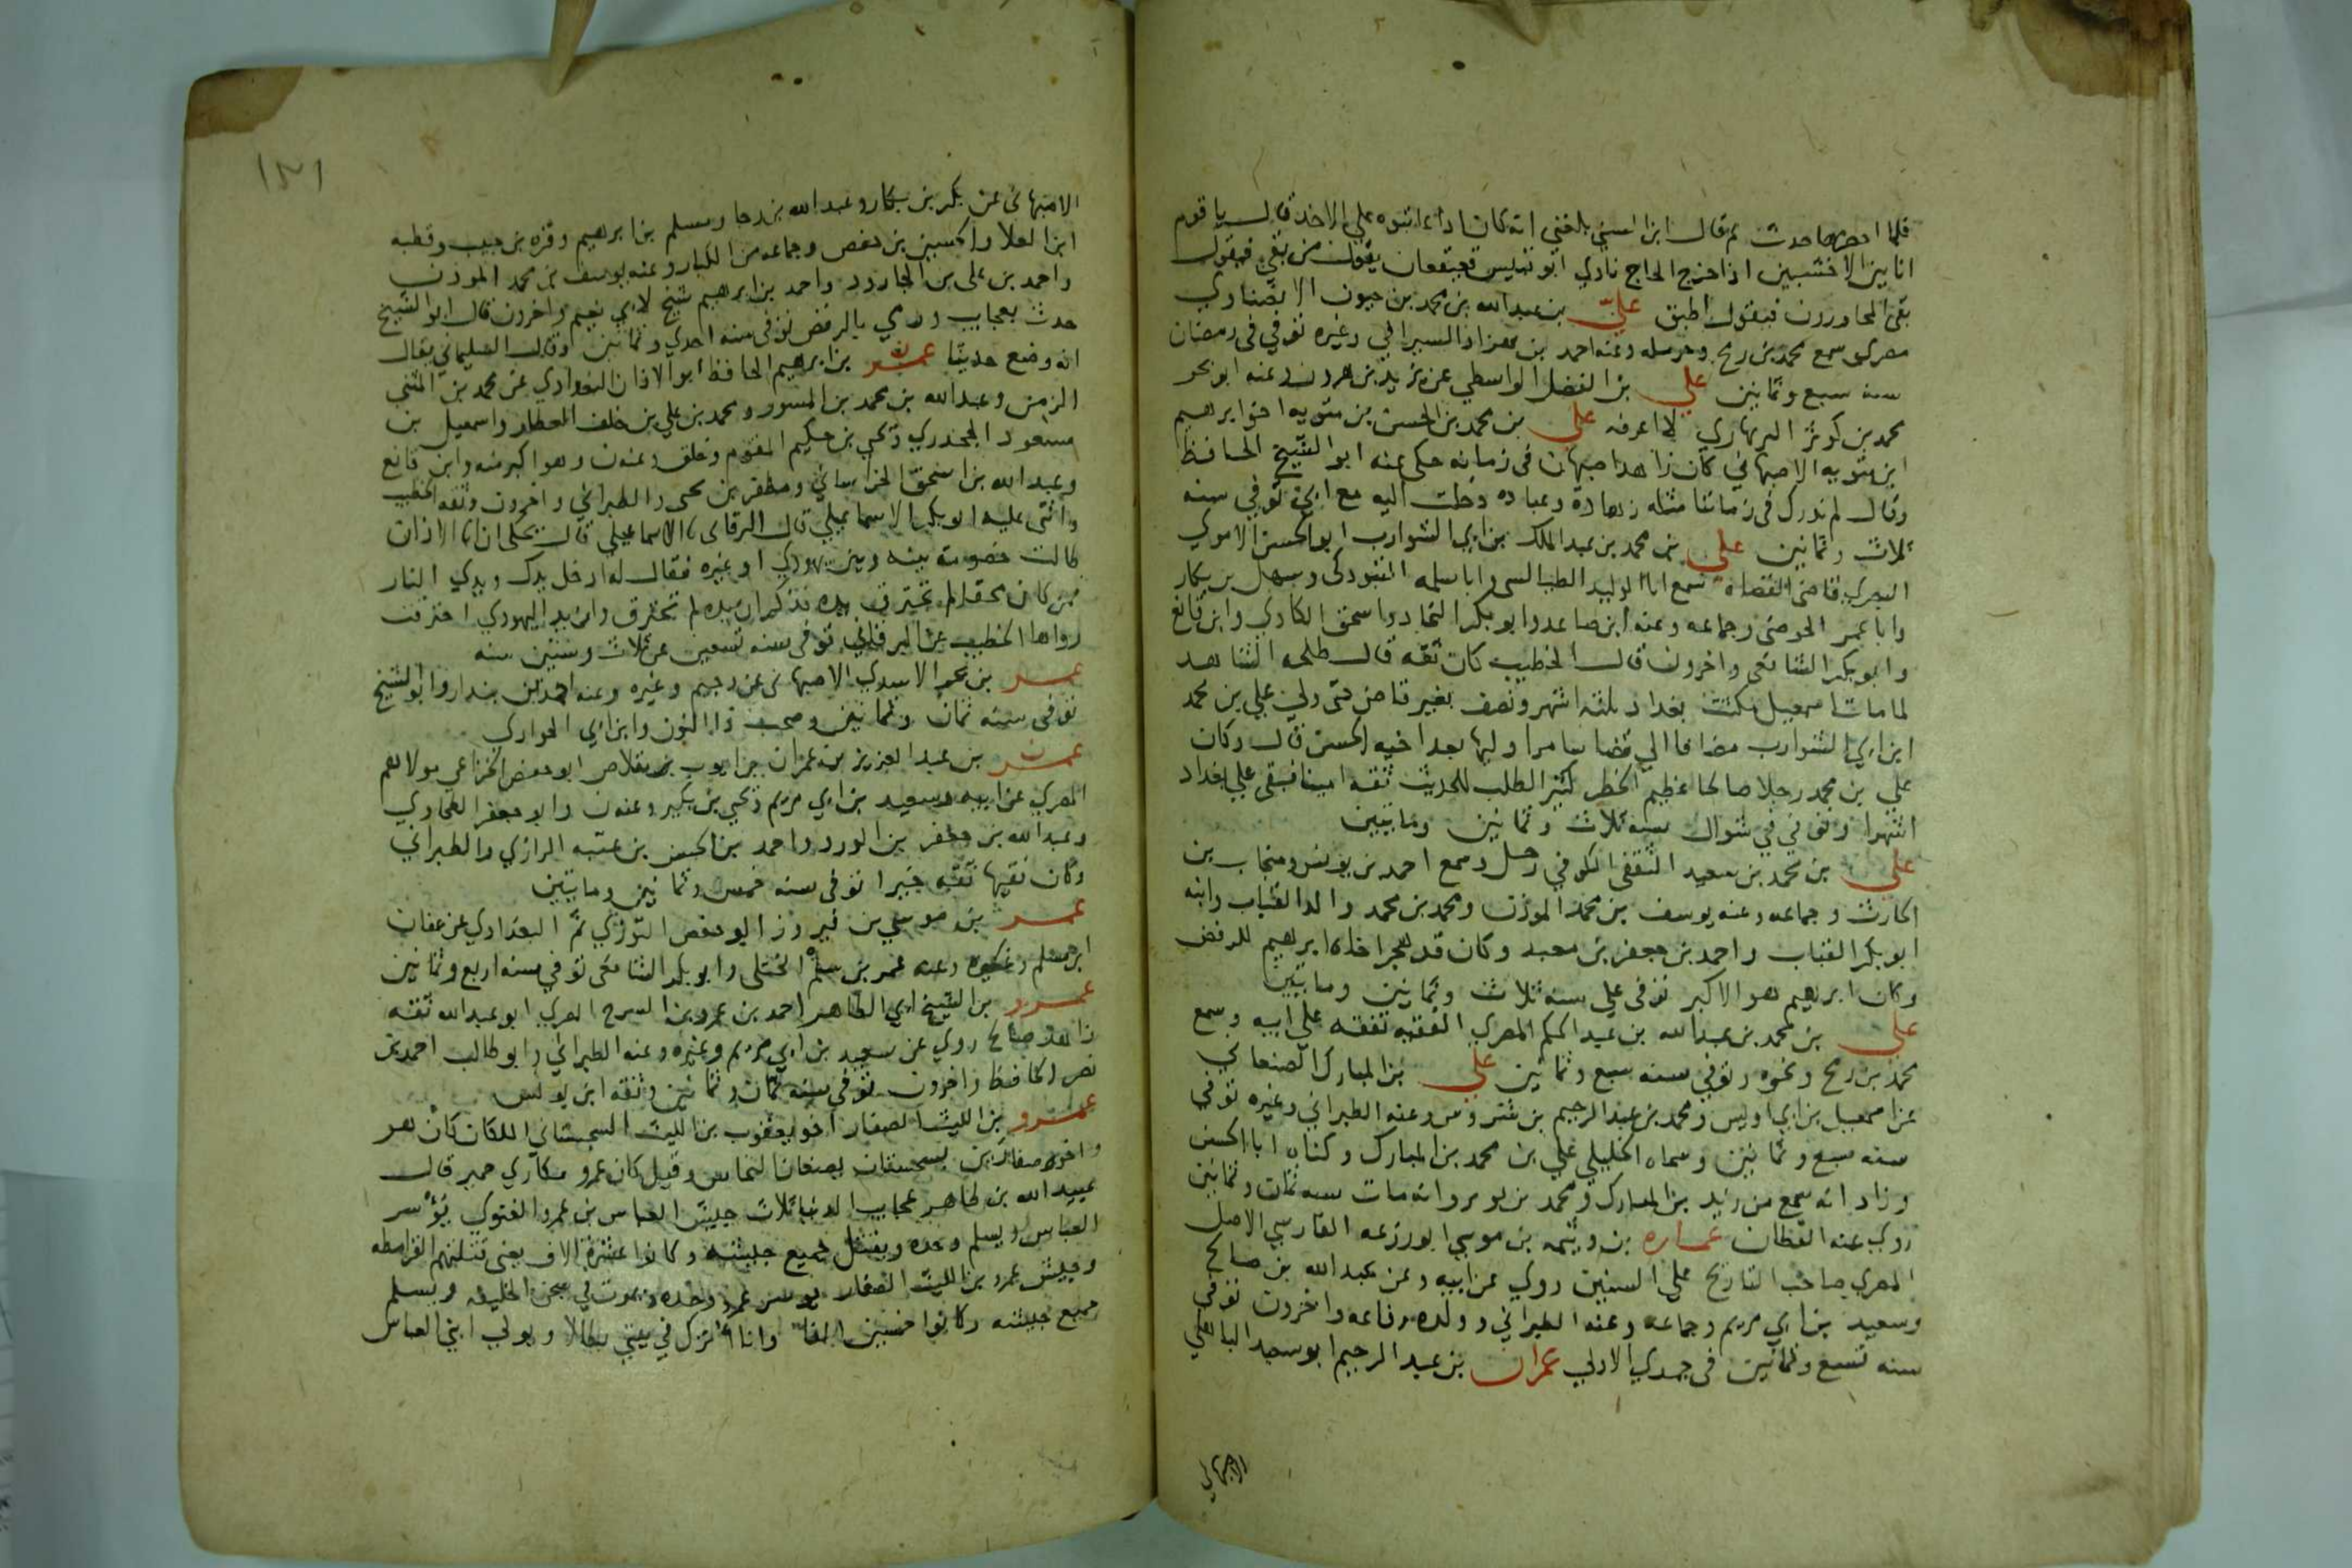 فلما احضرها حدث ثم قال ابن السني بلغني انه كان اذا اتوه علي الاخذ قال يا قوم
انا بين الاخشبين اذا خرج الحاج نادي ابو قبيس قعيقعان يقول من بقي فيقول
بقي المجاورون فيقول اطبق علي بن عبد الله بن محمد بن حيون الانصناوي
مصري سمع محمد بن رمح وحرمله وعنه احمد بن بهزاد السيرافي وغيره توفي في رمضان
سنه سبع وثمانين علي بن الفضل الواسطي عن يزيد بن هرون وعنه ابو بحر
محمد بن كوثر البربهاري لا اعرفه علي بن محمد بن الحسن بن متويه اخو ابرهيم
ابن متويه الاصبهاني كان زاهد اصبهان في زمانه حكي عنه ابو الشيخ الحافظ
وقال لم ندرك في زماننا مثله زهادة وعباده دخلت اليه مع ابي توفي سنه
ثلاث وثمانين علي بن محمد بن عبد الملك بن ابي الشوارب ابو الحسن الاموي
البصري قاضي القضاة سمع ابا الوليد الطيالسي وابا سلمه التبوذكي وسهل بن بكار
وابا عمر الحوضي وجماعه وعنه ابن صاعد وابو بكر النجاد واسحق الكاذي وابن قانع
وابو بكر الشافعي واخرون قال الخطيب كان ثقه قال طلحه الشاهد
لما مات اسمعيل مكثت بغداد ثلثه اشهر ونصف بغير قاض حتي ولي علي بن محمد
ابن ابي الشوارب مضافا الي قضا سامرا وليها بعد اخيه الحسن قال وكان
علي بن محمد رجلا صالحا عظيم الخطر كثير الطلب للحديث ثقه امينا فبقي علي بغداد
اشهرا وتوفي في شوال سنه ثلاث وثمانين ومايتين
علي بن محمد بن سعيد الثقفي الكوفي رحل وسمع احمد بن يونس ومنجاب بن
الحارث وجماعه وعنه يوسف بن محمد الموذن ومحمد بن محمد والد القباب وابنه
ابو بكر القباب واحمد بن جعفر بن معبد وكان قد هجر اخاه ابرهيم للرفض
وكان ابرهيم هو الاكبر توفي علي سنه ثلاث وثمانين ومايتين
علي بن محمد بن عبد الله بن عبد الحكم المصري الفقيه تفقه علي ابيه وسمع
محمد بن رمح ونحوه وتوفي سنه سبع وثمانين علي بن المبارك الصنعاني
عن اسمعيل بن ابي اويس ومحمد بن عبد الرحيم بن شروس وعنه الطبراني وغيره توفي
سنه سبع وثمانين وسماه الخليلي علي بن محمد بن المبارك وكناه ابا الحسن
وزاد انه سمع من زيد بن المبارك ومحمد بن يوسف وانه مات سنه ثمان وثمانين
روي عنه القطان عماره بن وثيمه بن موسي ابو رزعه الفارسي الاصل
المصري صاحب التاريخ علي السنين روي عن ابيه وعن عبد الله بن صالح
وسعيد بن ابي مريم وجماعه وعنه الطبراني وولده رفاعه واخرون توفي
سنه تسع وثمانين في جمدي الاولي عمران بن عبد الرحيم ابو سعيد الباهلي
الاصبهاني
١٣١
الاصبهاني عن بكر بن بكار وعبد الله بن رجا ومسلم بن ابرهيم وقره بن حبيب وقطبه
ابن العلا والحسين بن حفص وجماعه من الكبار وعنه يوسف بن محمد الموذن
واحمد بن علي بن الجارود واحمد بن ابرهيم شيخ لابي نعيم واخرون قال ابو الشيخ
حدث بعجايب ورمي بالرفض توفي سنه احدي وثمانين وقال السليماني يقال
انه وضع حديثا عمر بن ابرهيم الحافظ ابو الاذان البغدادي عن محمد بن المثني
الزمن وعبد الله بن محمد بن المسور ومحمد بن علي بن خلف العطار واسمعيل بن
مسعود الجحدري ويحي بن حكيم المقوم وخلق وعنه ن وهو اكبر منه وابن قانع
وعبد الله بن اسحق الخراساني ومظفر بن يحيي والطبراني واخرون وثقه الخطيب
واثني عليه ابو بكر الاسماعيلي قال البرقاني نا الاسماعيلي قال يحكي ان ابا الاذان
كانت خصومة بينه وبين يهودي او غيره فقال له ادخل يدك ويدي النار
فمن كان محقا لم تحترق يده فذكر ان يده لم تحترق وان يد اليهودي احترقت
رواها الخطيب عن البرقاني توفي سنه تسعين عن ثلاث وستين سنه
عمر بن بحر الاسدي الاصبهاني عن دحيم وغيره وعنه احمد بن بندار وابو الشيخ
توفي سنه ثمان وثمانين وصحب ذا النون وابن ابي الحواري
عمر بن عبد العزيز بن عمران بن ايوب بن مقلاص ابو حفص الخزاعي مولاهم
المصري عن ابيه وسعيد بن ابي مريم ويحيي بن بكير وعنه ن وابو جعفر الطحاوي
وعبد الله بن جعفر بن الورد واحمد بن الحسن بن عتبه الرازي والطبراني
وكان فقيها ثقه خيرا توفي سنه خمس وثمانين ومايتين
عمر بن موسي بن فيروز ابو حفص التوزي ثم البغدادي عن عفان
ابن مسلم وغيره وعنه عمر بن سلم الختلي وابو بكر الشافعي توفي سنه اربع وثمانين
عمرو بن الشيخ ابي الطاهر احمد بن عمرو بن السرح المصري ابو عبد الله ثقه
زاهد صالح روي عن سعيد بن ابي مريم وغيره وعنه الطبراني وابو طالب احمد بن
نصر الحافظ واخرون توفي سنه ثمان وثمانين وثقه ابن يونس
عمرو بن الليث الصفار اخو يعقوب بن الليث السجستاني الملكان كان هو
واخوه صفارين بسجستان يصنعان النحاس وقيل كان عمرو مكاري حمير قال
عبيد الله بن طاهر عجايب الدنيا ثلاث جيش العباس بن عمرو الغنوي يؤسر
العباس ويسلم وحده ويقتل جميع جيشه وكانوا عشرة الاف يعني قتلتهم القرامطه
وجيش عمرو بن الليث الصفار يوسر عمرو وحده ويموت في سجن الخليفه ويسلم
جميع جيشه وكانوا خمسين الفا وانا انزل في بيتي بطالا ويولي ابني العباس